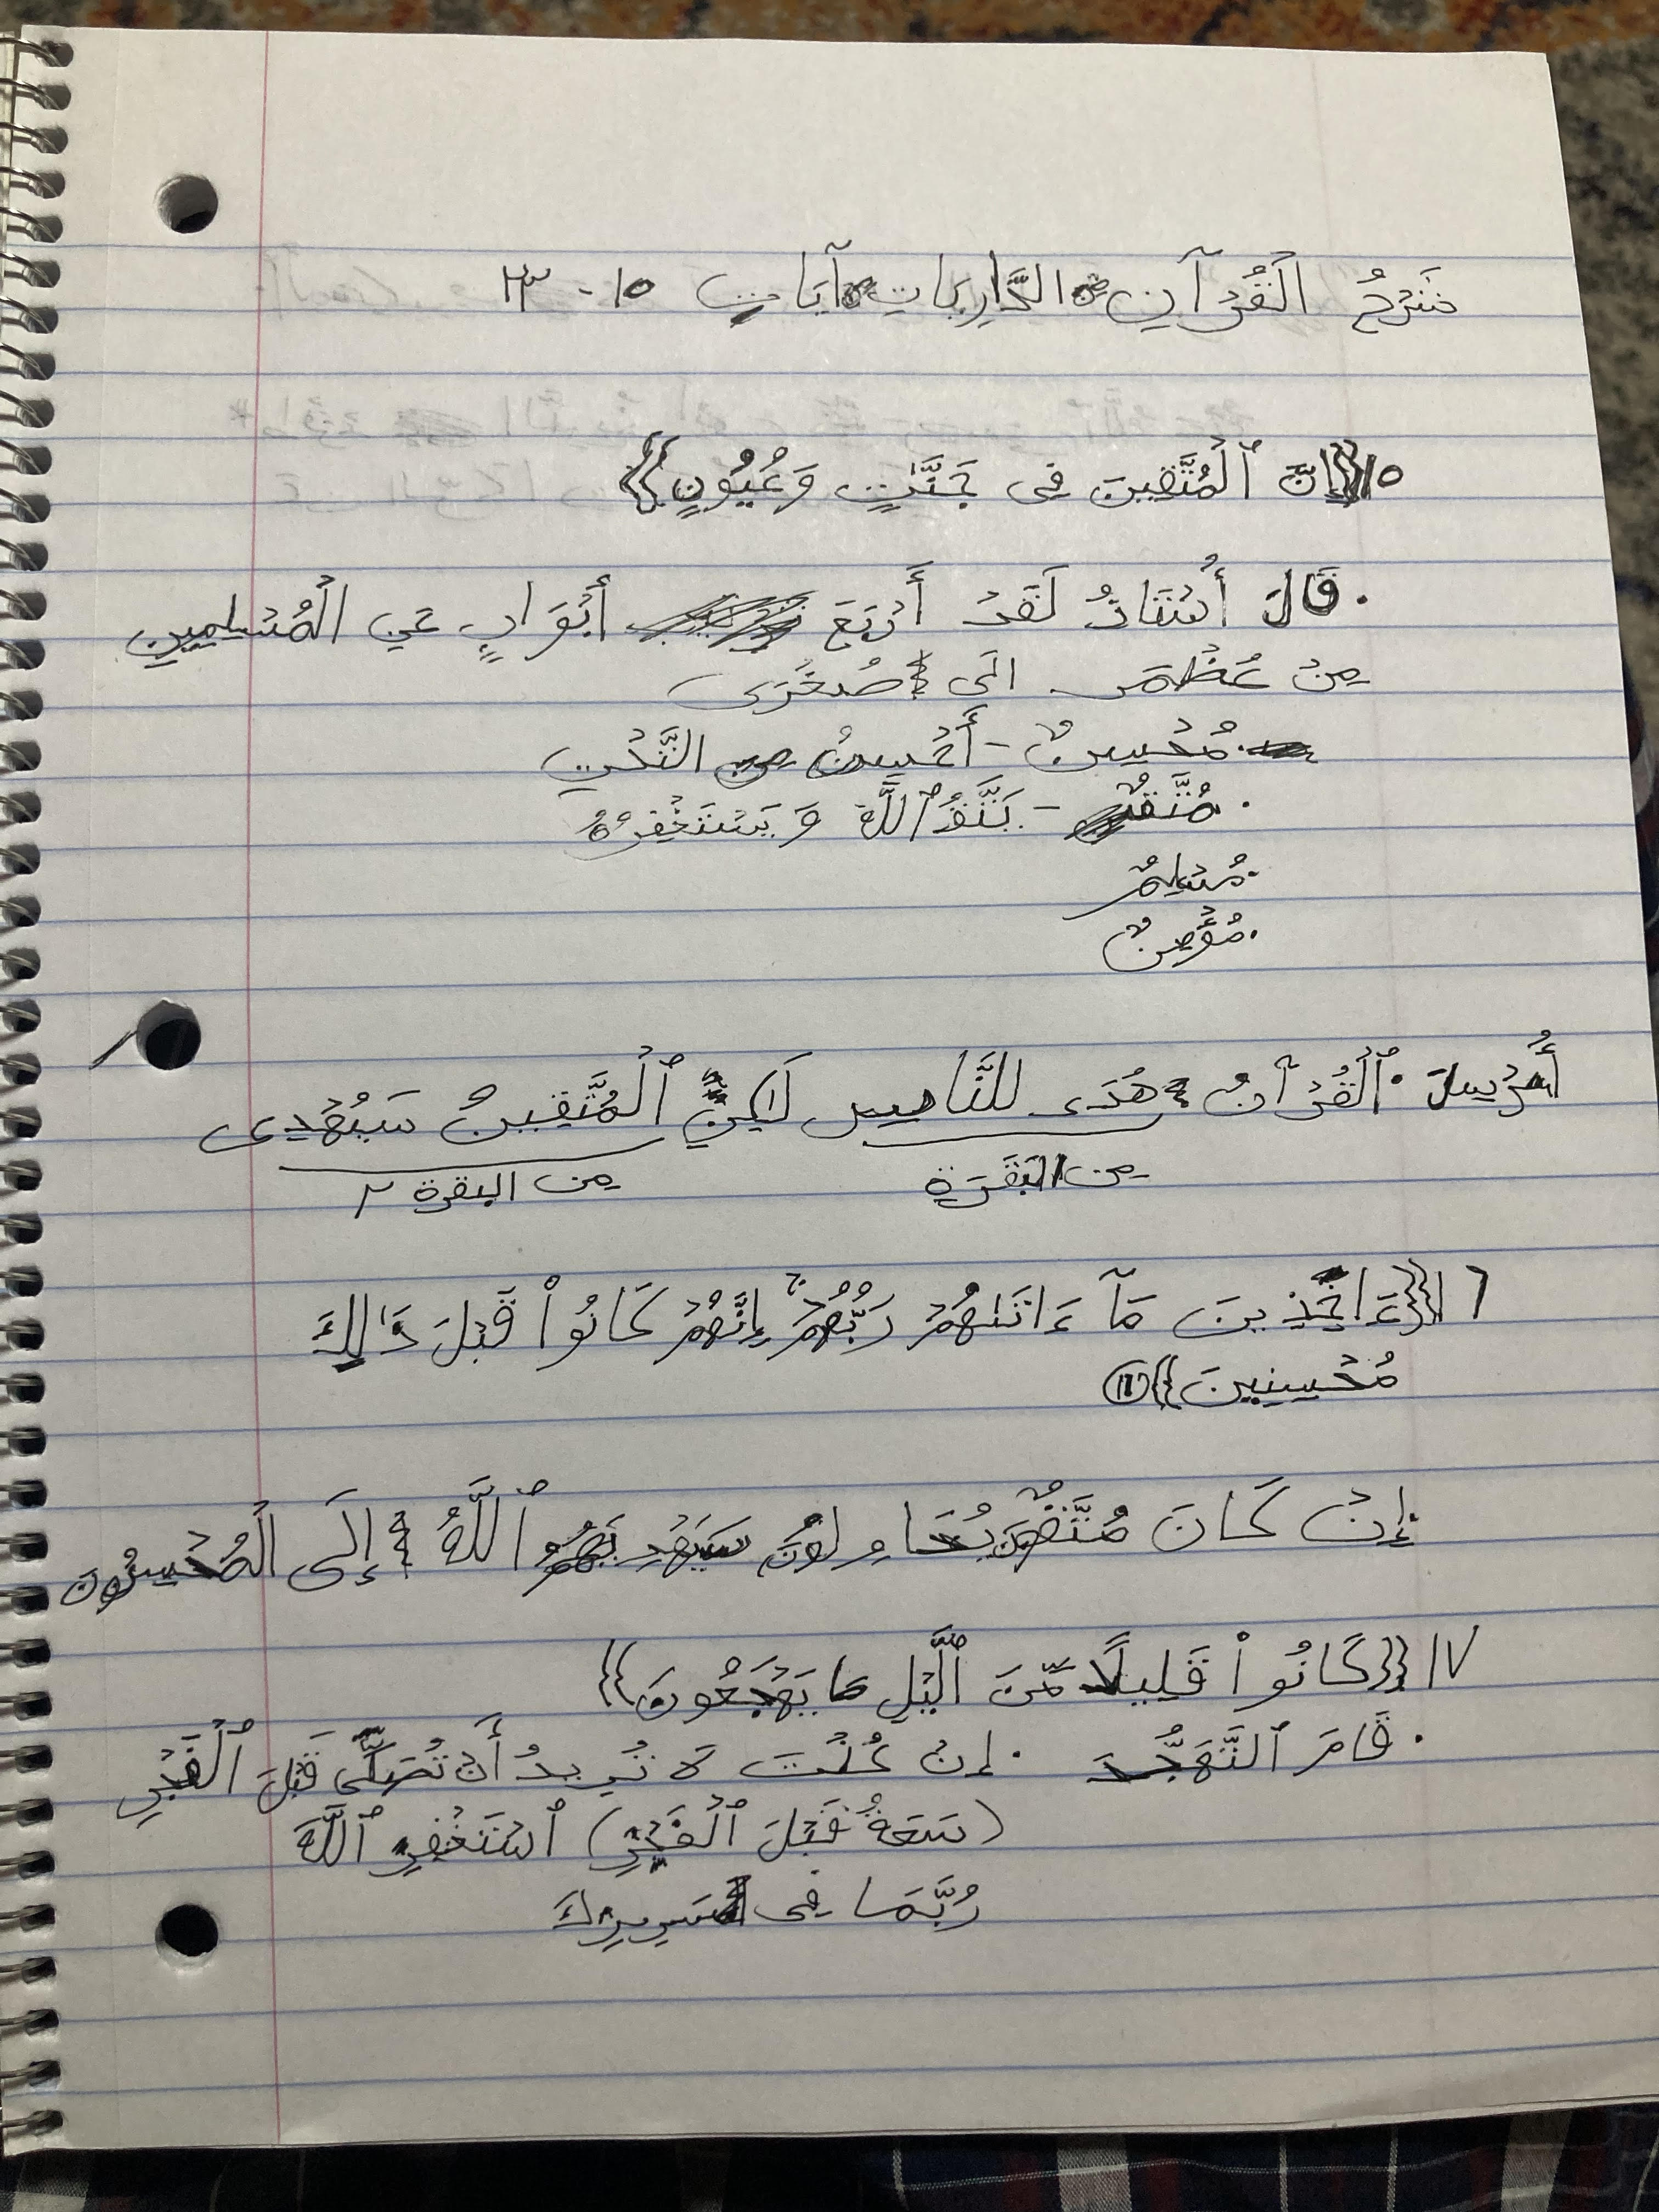 شَرْحُ الْقُرْآنِ الذَّارِيَات آيَاتِ ١٥ - ٢٣
١٥{{إِنَّ ٱلْمُتَّقِينَ فِى جَنَّٰتٍ وَعُيُونٍ}}
. قَالَ أُسْتَاذُ لَقَدْ أَرْبَعَ أَبْوَابٍ عَنِ الْمُسْلِمِينِ
مِنْ عُظْمَى الَى صُغْرَى
. مُحْسِنٌ - أَحْسَنُ مِن
. مُتَّقٌ - يَتَّقُ ٱللَّهَ وَ يَسْتَغْفِرُهُ
. مُسْلِمٌ
. مُؤْمِنٌ
أُرْسِلَ ٱلْقُرْآنُ هُدَى لِلنَّاسِ لَٰكِنِّ ٱلْمُتَّقِينُ سَيُهْدِى
مِن الْبَقَرَةِ
مِن البقرة ٢
١٦{{ءَاخِذِينَ مَآ ءَاتَىٰهُمْ رَبُّهُمْ ۚ إِنَّهُمْ كَانُوا۟ قَبْلَ ذَٰلِكَ
مُحْسِنِينَ}} ١٦
إِنْ كَانَ مُتَّقٌ يُحَاوِلُونَ سَيَهْدِيَهُمُ ٱللَّهُ إِلَى الْمُحْسِنُونَ
١٧ {{كَانُوا۟ قَلِيلًا مِّنَ ٱلَّيْلِ مَا يَهْجَعُونَ}}
. قَامَ ٱلتَّهَجُّدَ . إِنْ كُنْتَ لَا تُرِيدُ أَنْ تُصَلِّى قَبْلَ ٱلْفَجْرِ
(سَعَةٌ قَبْلَ ٱلْفَجْرِ) ٱسْتَغْفِرِ ٱللَّهَ
رُبَّمَا فِى سَرِيرِكَ